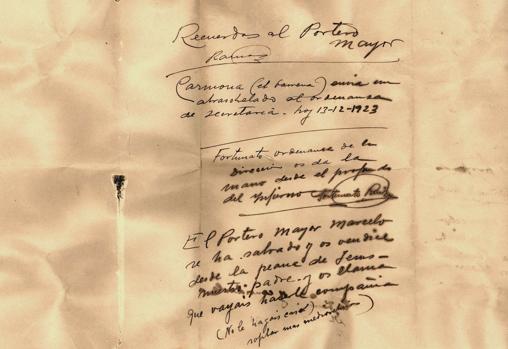 Recuerdos al Portero
Mayor
Ramos
Carmona (el barrena) envia un
abrazo helado al ordenanza
de secretaria. hoy 13-12-1923
Fortunato ordenanza de la
Dirección os da la
mano desde el profundo
del ynfierno Fortunato
El Portero Mayor Marcelo
se ha salvado y os vendice
desde la peana de
muestro padre y os llama
que vayais hacerle compañia
(No le hagais caso)